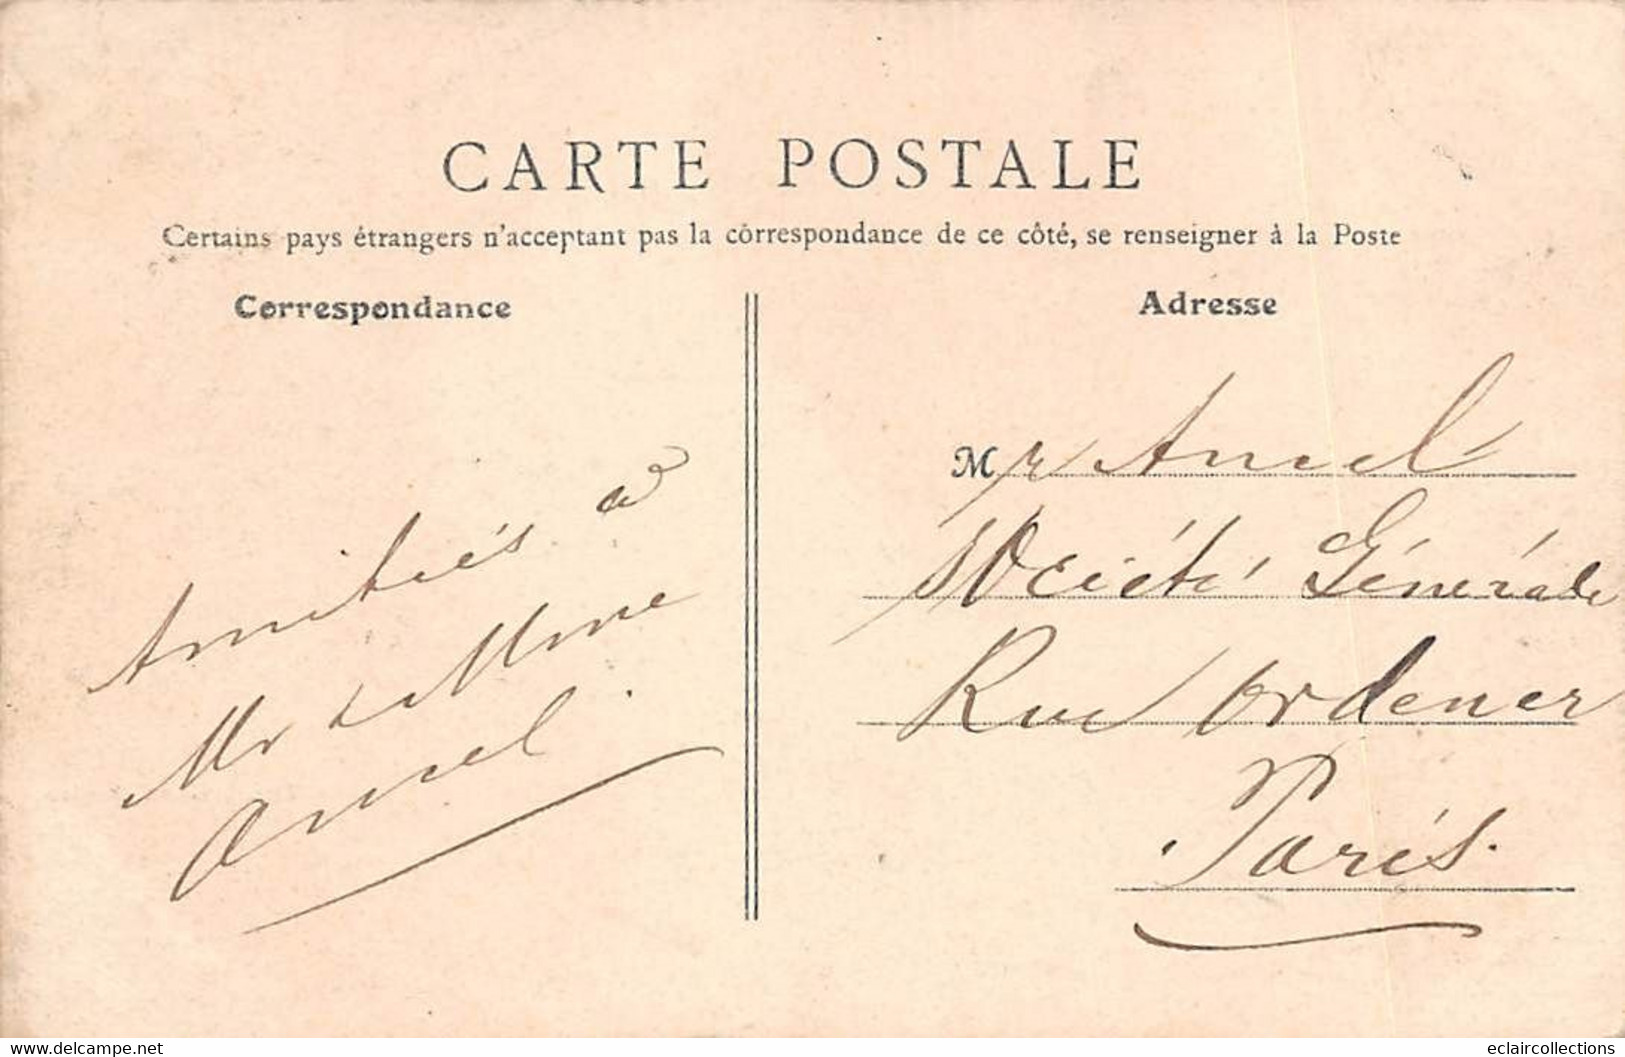 CARTE POSTALE
Certains pays étrangers n'acceptant pas la correspondance de ce côté, se renseigner à la Poste
Correspondance
Amitiés à
Mr & Mme
Ancel
Adresse
Mr Ancel
Société Générale
Rue Ordener
Paris.
www.delcampe.net
eclaircollections